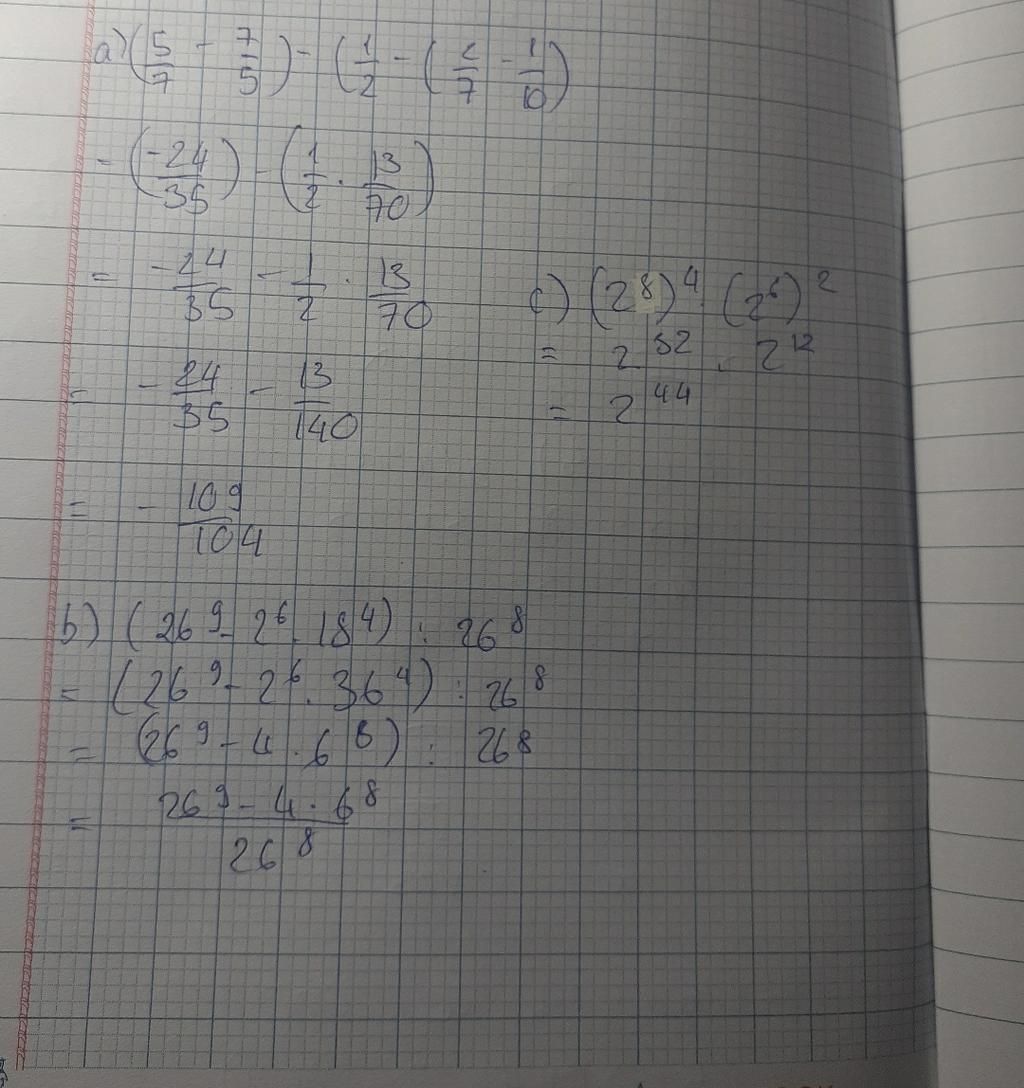 a) (5/7 - 7/5) - (1/2 - (2/7 - 1/10)
= (-24/35) - (1/2 · 13/70)
= -24/35 - 1/2 · 13/70
= -24/35 - 13/140
= - 109/104
c) (2^8)^4 · (2^6)^2
= 2^32 · 2^12
= 2^44
b) (26^9 - 2^6 · 18^4) : 26^8
= (26^9 - 2^6 · 36^4) : 26^8
= (26^9 - 4 · 6^8) : 26^8
= 26^9 - 4 · 6^8 / 26^8